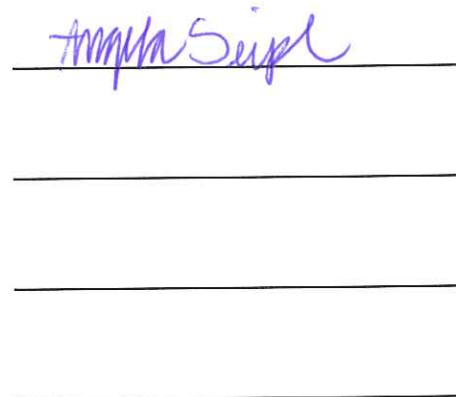 Angela Seipel